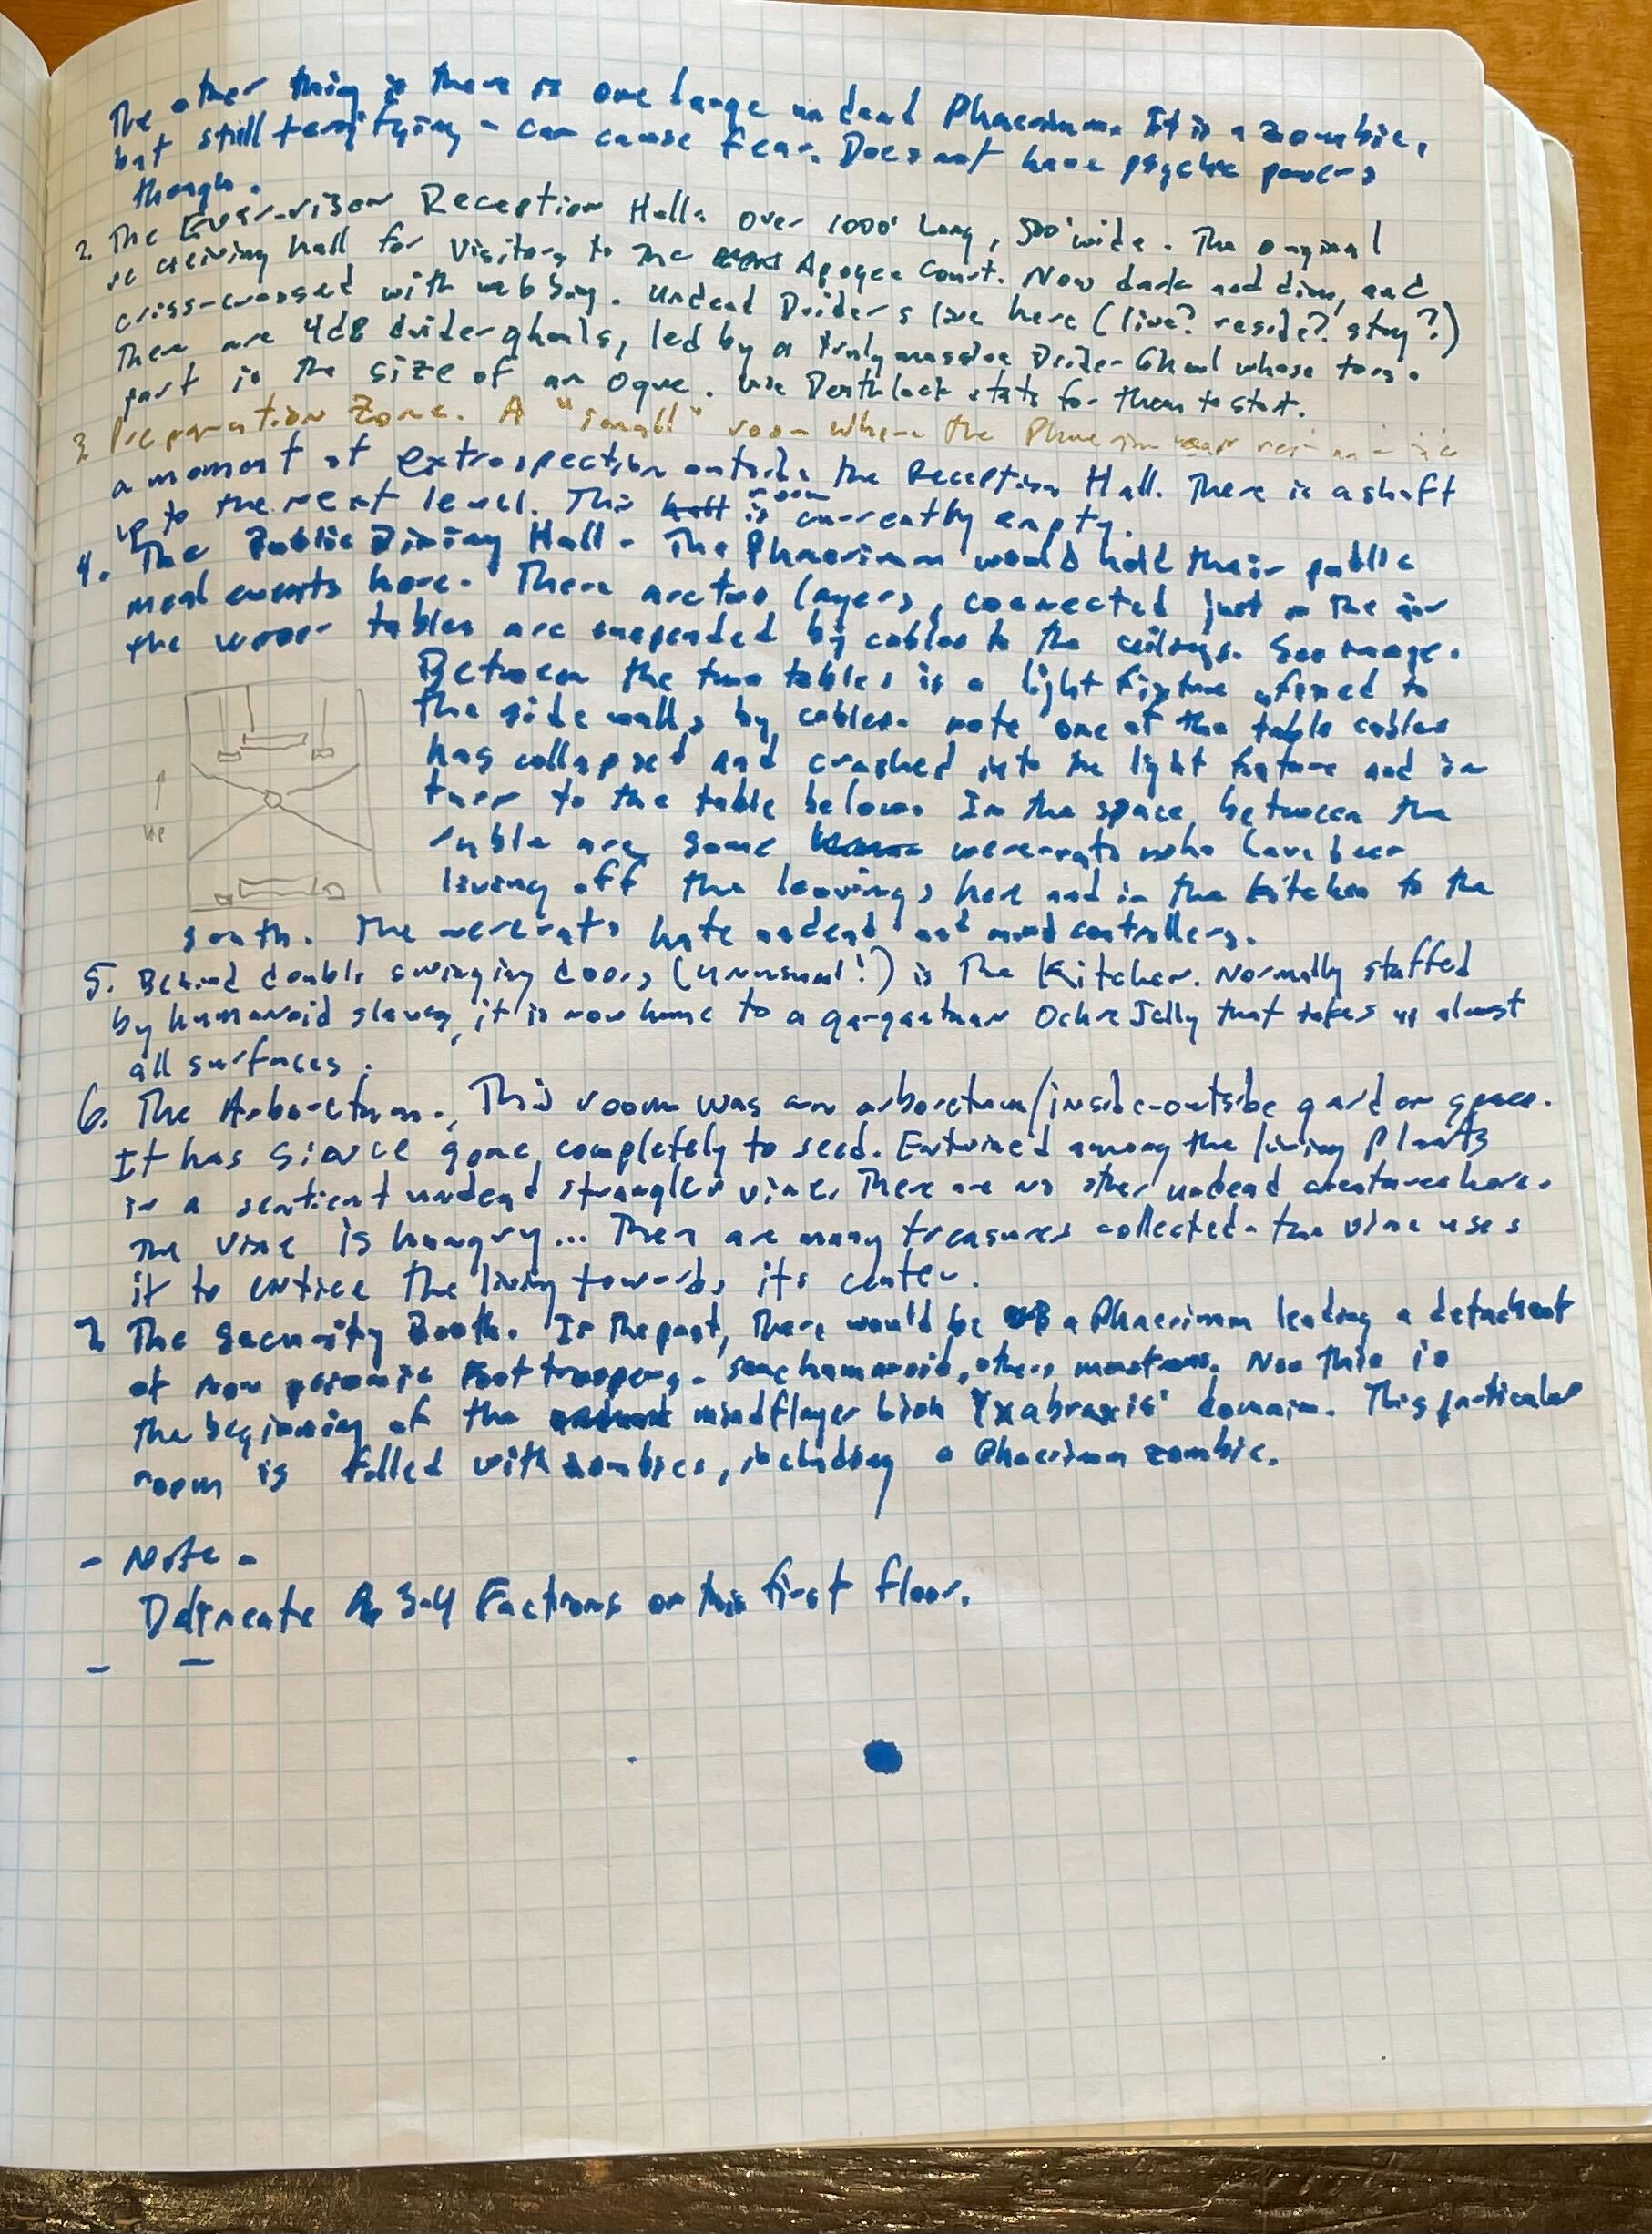 The other thing is there is one large undead Phaerimm. It is a zombie,
but still terrifying - can cause fear. Does not have psychic powers
though.
2. The Reception Hall. Over 1000' Long, 500' wide. The original
receiving hall for Visitors to the Apogee Court. Now dark and dim, and
criss-crossed with webbing. Undead Driders live here (live? reside? stay?)
There are 4d8 drider ghouls, led by a truly massive Drider-Ghoul whose torso
part is the size of an Ogre. Use Deathlock stats for them to start.
3. Preparation Zone. A "small" room where the Phaerimm
a moment of extrospection outside the Reception Hall. There is a shaft
up to the next level. This room is currently empty.
4. The Public Dining Hall - The Phaerimm would hold their public
meal events here. There are two layers, connected just in the air
the upper tables are suspended by cables to the ceilings. See image.
Between the two tables is a light fixture affixed to
the side walls by cables. note one of the table cables
has collapsed and crashed into the light fixture and in
turn to the table below. In the space between the
ruble are some wererats who have been
living off the leavings here and in the kitchen to the
up
south. The wererats hate undead and mind controllers.
5. Behind double swinging doors (unusual!) is The Kitchen. Normally staffed
by humanoid slaves, it is now home to a gargantuan Ochre Jelly that takes up almost
all surfaces.
6. The Arboretum. This room was an arboretum/inside-outside garden space.
It has since gone completely to seed. Entwined among the living Plants
is a sentient undead strangler vine. There are no other undead creatures here.
The vine is hungry... There are many treasures collected - the vine uses
it to entice the living towards its center.
7. The Security Booth. In the past, there would be a Phaerimm leading a detachment
of non psionic foot troopers - some humanoid, others monstrous. Now this is
the beginning of the mindflayer lich Yxabraxis' domain. This particular
room is filled with zombies, including a Phaerimm zombie.
- Note -
Delineate 3-4 Factions on this first floor.
- -